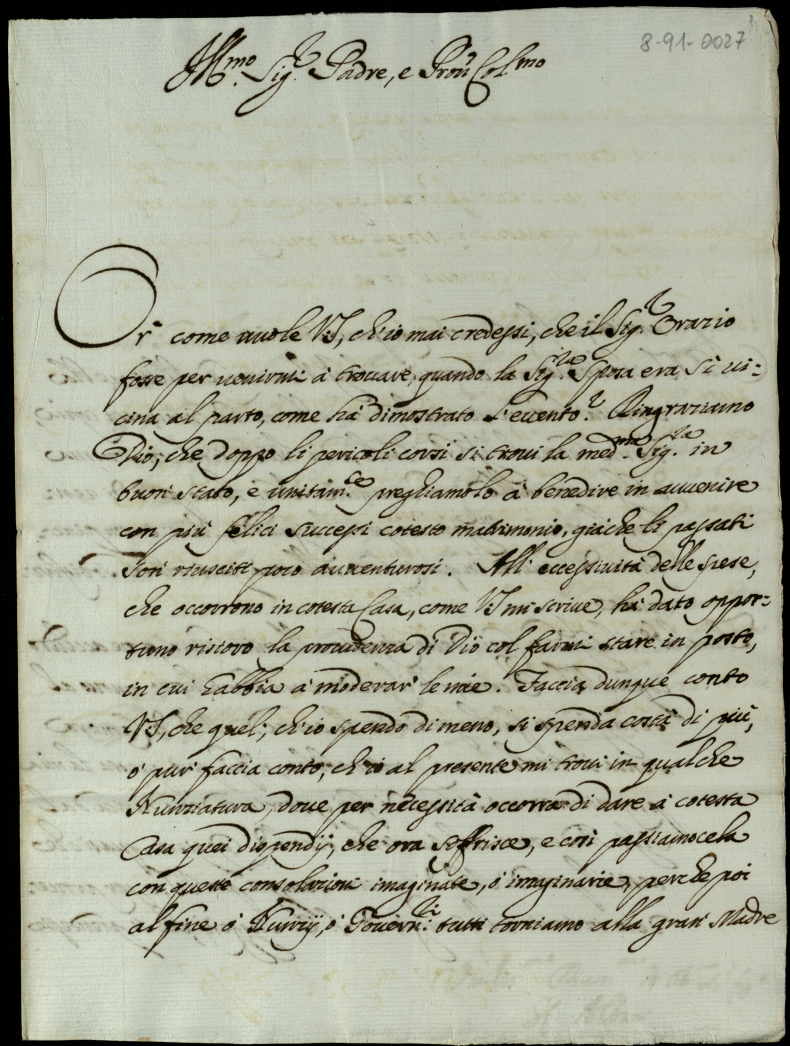 8-91-0027
Ill.mo Sig.r Padre, e Pron Col.mo
Or' come vuole VS, ch'io mai credessi, che il Sig.r Orazio
fosse per venirmi à trovare, quando la Sig.ra Sposa era sì vi=
cina al parto, come hà dimostrato l'evento? Ringraziamo
Dio, che doppo li pericoli corsi si trovi la med.ma Sig.ra in
buon stato, e unitam.te preghiamolo à benedire in avvenire
con più felici successi cotesto matrimonio, giache li passati
son riusciti poco avventurosi. All'eccessività delle spese,
che occorrono in cotesta Casa, come VS mi scrive, hà dato oppor=
tuno ristoro la providenza di Dio col farmi stare in posto,
in cui habbia à moderar' le mie. Faccia dunque conto
VS, che quel, ch'io spendo di meno, si spenda costà di più,
ò pur' faccia conto, ch'io al presente mi trovi in qualche
Nunziatura, dove per necessità occorra di dare à cotesta
Casa quei dispendij, che ora soffrisce, e così passiamocela
con queste consolazioni imaginate, ò imaginarie, perche poi
al fine ò Nunzij, ò Govern.ri tutti torniamo alla gran' Madre